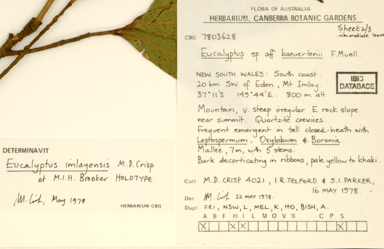 FLORA OF AUSTRALIA
HERBARIUM, CANBERRA BOTANIC GARDENS
Sheet 2/3
intermediate leaves
CBG 7803628
Eucalyptus sp. aff. baeuerlenii F. Muell.
NEW SOUTH WALES: South coast:
20 km SW of Eden, Mt Imlay.
37°11'S 149°44'E. 800 m alt.
IBIS
DATABASE
Mountain, v. steep irregular E. rock slope
near summit. Quartzite crevices.
Frequent emergent in tall closed-heath with
Leptospermum, Oxylobium & Boronia.
Mallee, 7m, with 5 stems.
Bark decorticating in ribbons, pale yellow to khaki.
Coll. M.D. CRISP 4021, I.R. TELFORD & S.I. PARKER,
16 MAY 1978.
Det. 22 MAY 1978.
Dupl. FRI, NSW, L, MEL, K, HO, BISH, A.
A B F H I L M O V B C P S
DETERMINAVIT
Eucalyptus imlayensis M.D. Crisp
et M.I.H. Brooker HOLOTYPE
May 1979
HERBARIUM CBG